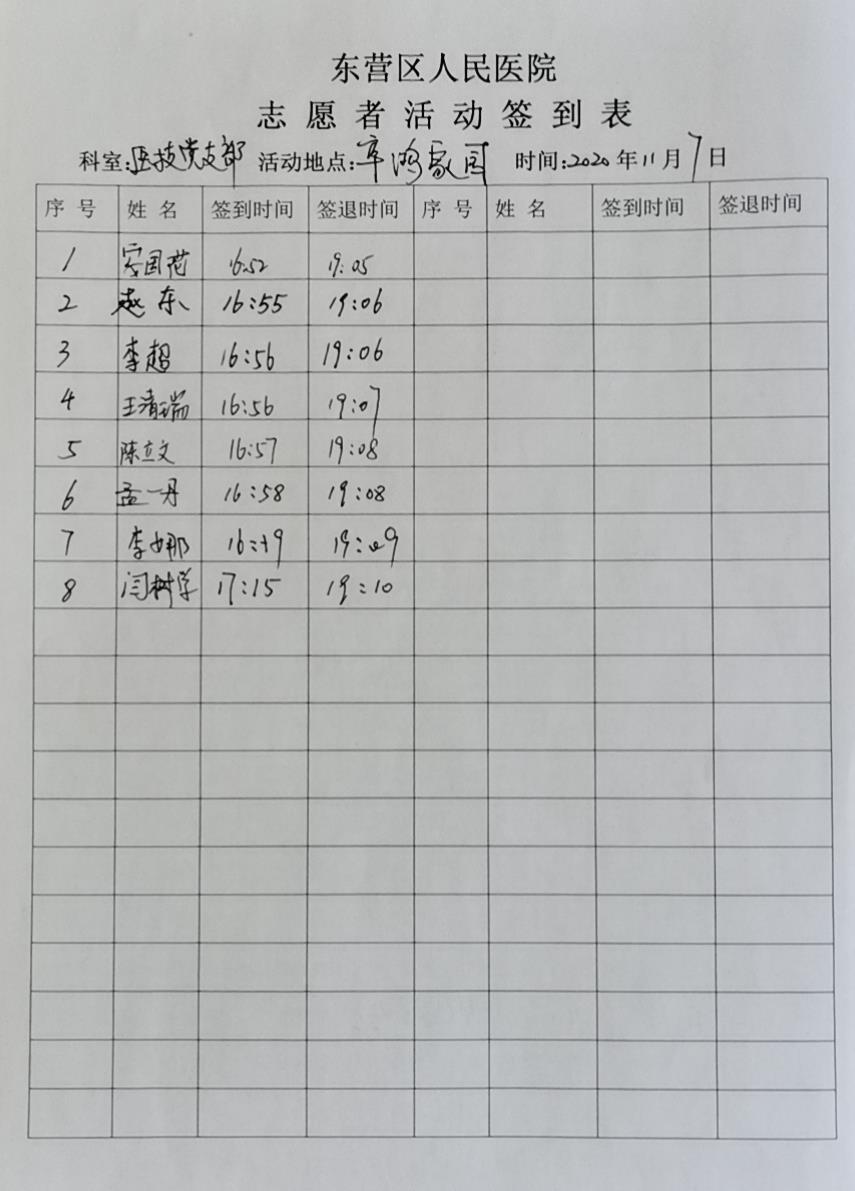 东营区人民医院
志愿者活动签到表
科室:医技党支部 活动地点:辛鸿家园 时间:2020年11月7日
序号 姓名 签到时间 签退时间 序号 姓名 签到时间 签退时间
1 16:52 19:05
2 赵东 16:55 19:06
3 李超 16:56 19:06
4 王清瑞 16:56 19:07
5 陈立文 16:57 19:08
6 孟一丹 16:58 19:08
7 李娜 16:59 19:09
8 闫树学 17:15 19:10